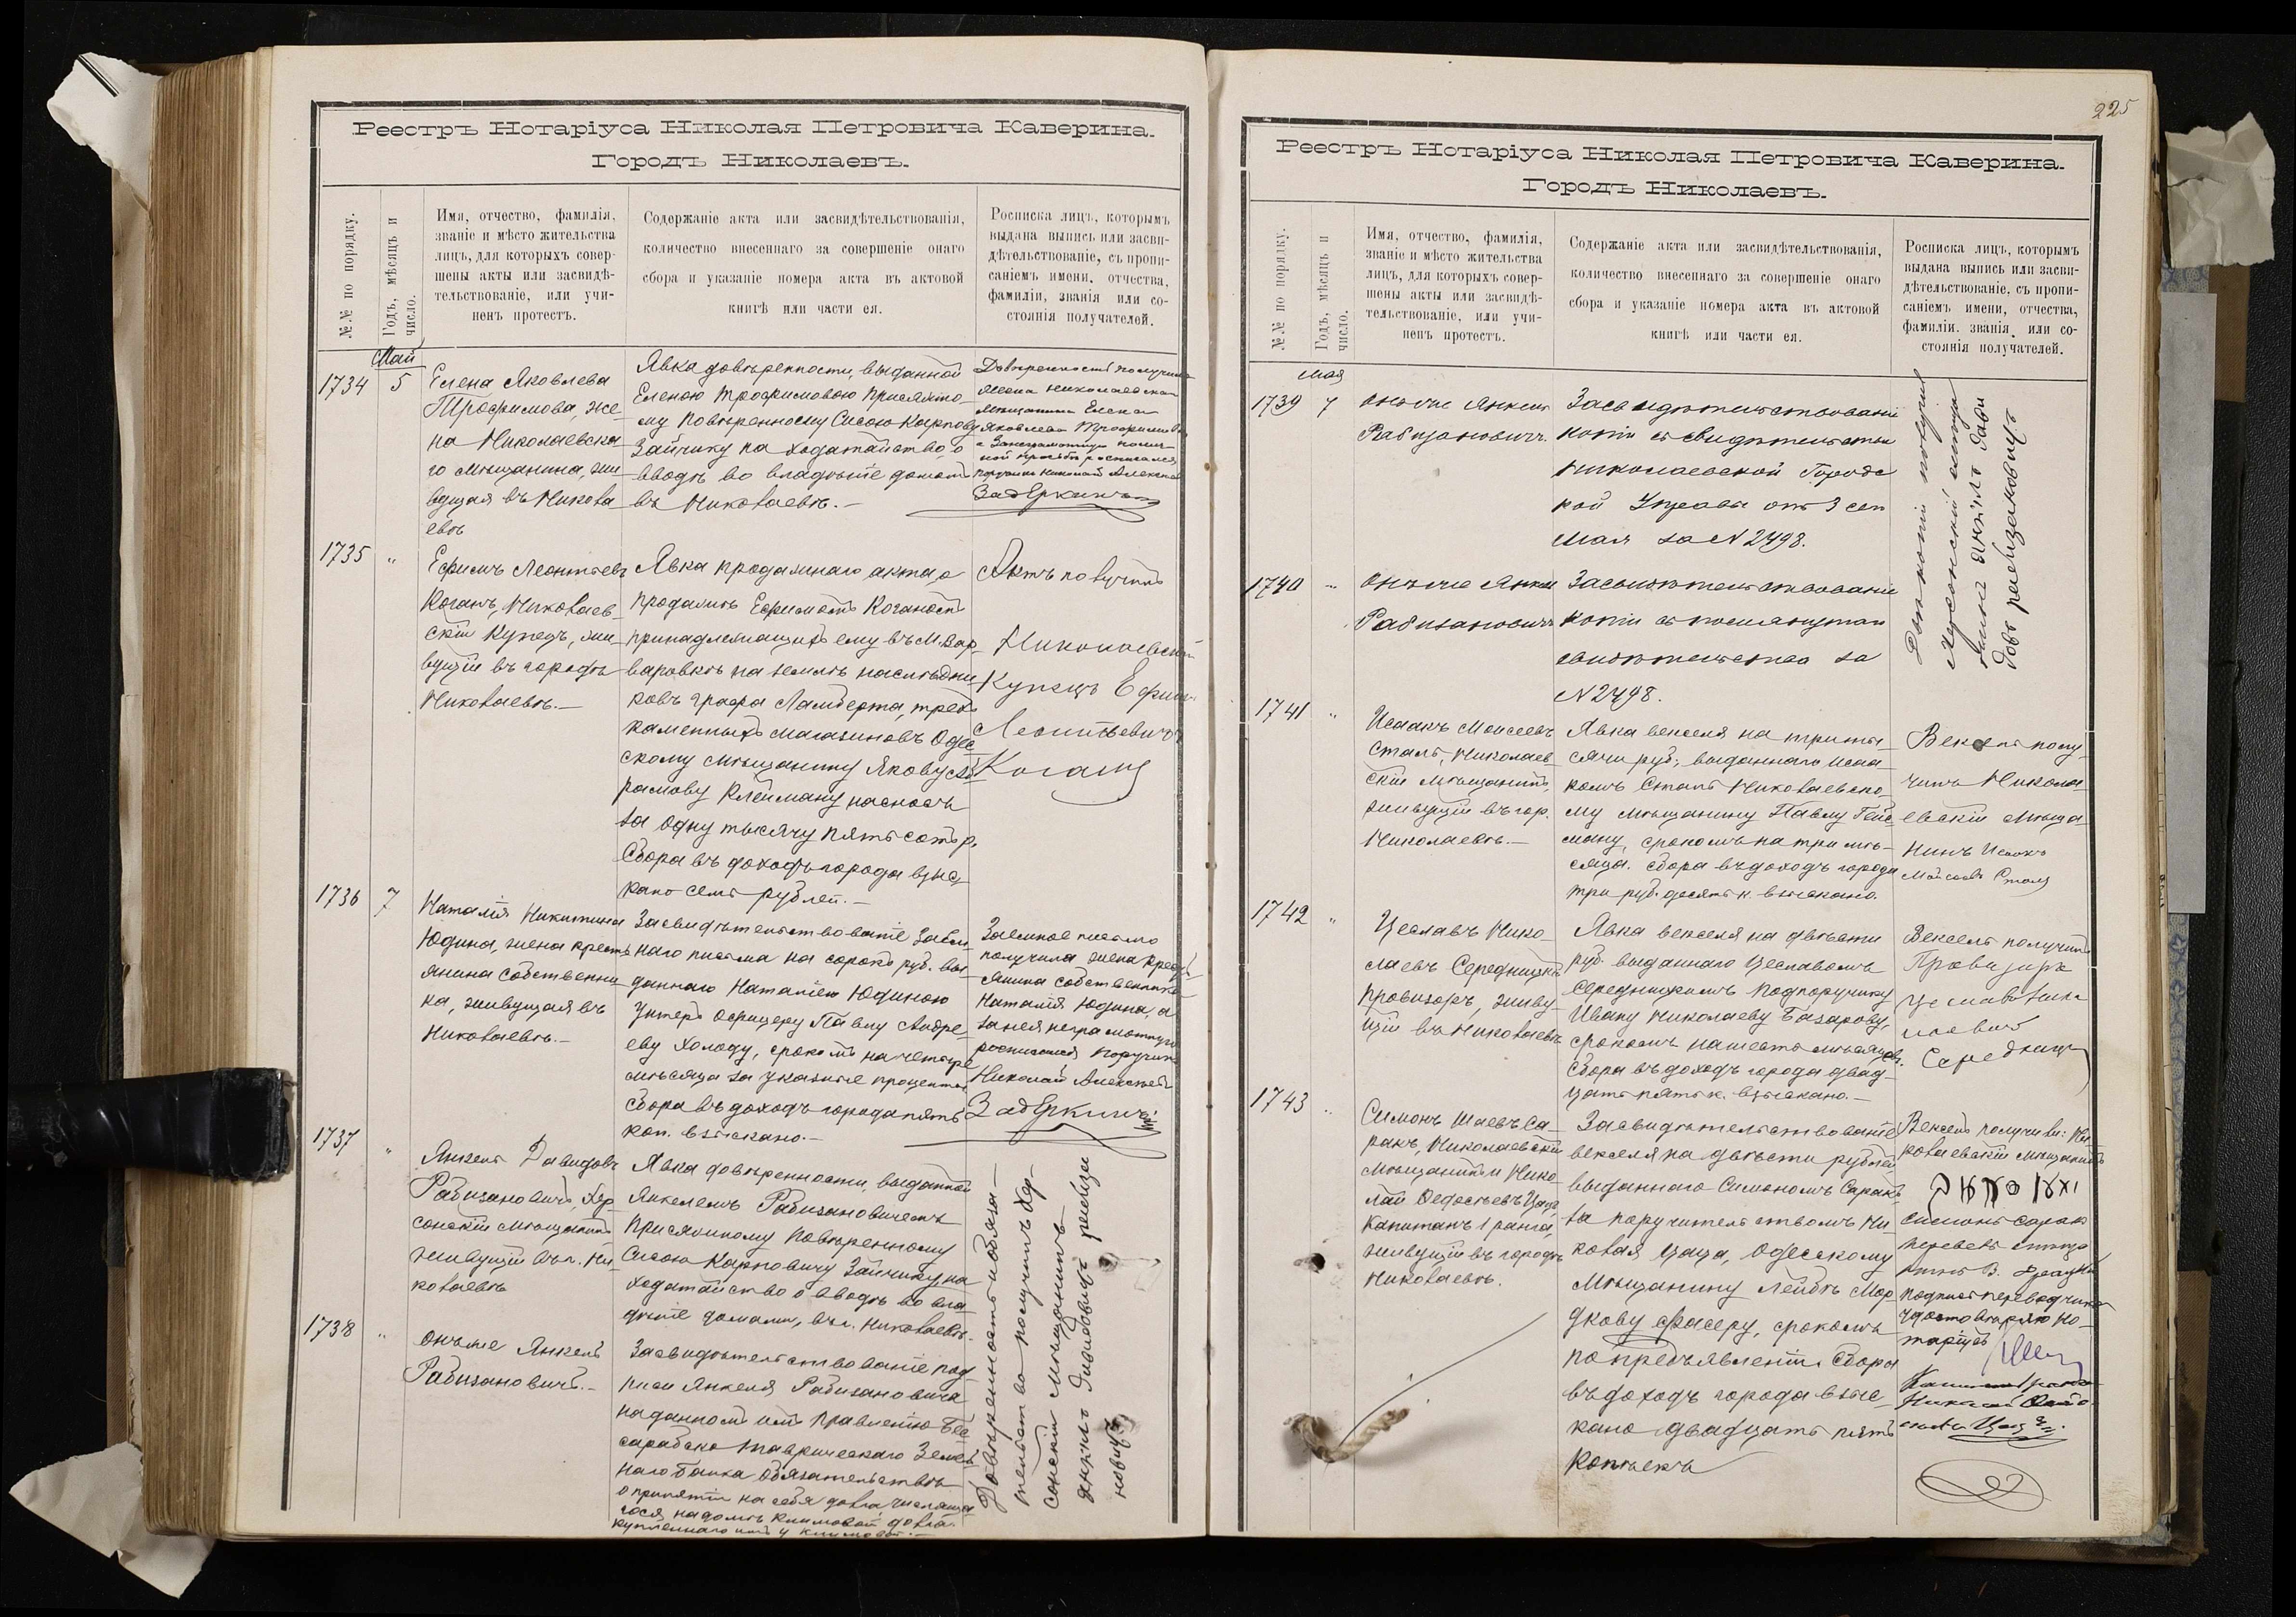 Реестръ Нотаріуса Николая Петровича Каверина.
Городъ Николаевъ.
№№ по порядку.
Годъ, мѣсяцъ и
число.
Имя, отчество, фамилія,
званіе и мѣсто жительства
лицъ, для которыхъ совер-
шены акты или засвидѣ-
тельствованіе, или учи-
ненъ протестъ.
Содержаніе акта или засвидѣтельствованія,
количество внесеннаго за совершеніе онаго
сбора и указаніе номера акта въ актовой
книгѣ или части ея.
Росписка лицъ, которымъ
выдана выпись или засви-
дѣтельствованіе, съ пропи-
саніемъ имени, отчества,
фамиліи, званія или со-
стоянія получателей.
Май
1734
5
Елена Яковлева
Трофимова, же-
на Николаевска
го мѣщанина, жи
вущая въ Никола
евѣ
Явка довѣренности, выданной
Еленою Трофимовою Присяжно-
му Повѣренному Сысою Карпову
Зайчику на ходатайство о
вводѣ во владѣніе домомъ
въ Николаевѣ.—
Довѣренность получила
жена Николаевскаго
мѣщанина Елена
Яковлева Трофимова
а за неграмотную по лич-
ной просьбѣ росписался
поручикъ Николай Алексѣев
Задеркинъ
1735
"
Ефимъ Леонтьевъ
Коганъ, Николаев
скій Купецъ, жи
вущій въ городѣ
Николаевѣ.—
Явка продажнаго акта о
продажѣ Ефимомъ Коганомъ
принадлежащихъ ему въ М. Вар-
варовкѣ на землѣ наслѣдни
ковъ графа Ламберта, трехъ
каменныхъ магазиновъ Одес
скому мѣщанину Якову Аб
рамову Клейману на сносъ
за одну тысячу пятьсотъ р.
Сбора въ доходъ города взыс
кано семь рублей.—
Актъ получилъ
Николаевскій
Купецъ Ефим
Леонтьевичъ
Коганъ
1736
7
Наталія Никитина
Юдина, жена кресть
янина собственни
ка, живущая въ
Николаевѣ.—
Засвидѣтельствованіе заем
наго письма на сорокъ руб. вы-
даннаго Наталіею Юдиною
Унтеръ Офицеру Павлу Андре
еву Холоду, срокомъ на четыре
мѣсяца за указные проценты
Сбора въ доходъ города пять
коп. взыскано.—
Заемное письмо
получила жена кресть
янина собственника
Наталія Юдина, а
за нея неграмотную
росписался поручикъ
Николай Алексѣевъ
Задеркинъ
1737
"
Янкель Давидовъ
Рабизановичъ, Хер
сонскій мѣщанинъ
живущій въ г. Ни
колаевѣ
Явка довѣренности, выданной
Янкелемъ Рабизановичемъ
Присяжному Повѣренному
Сысою Карповичу Зайчику на
ходатайство о вводѣ во вла-
дѣніе домами, въ г. Николаевѣ.
1738
"
Онъже Янкель
Рабизановичъ.—
Засвидѣтельствованіе под-
писи Янкеля Рабизановича
на данномъ имъ Правленію Бес
сарабско Таврическаго Земель
наго банка обязательствѣ
о принятіи на себя долга числяща
гося на домѣ Климовой, долга
купленнаго имъ у Климовой.—
Довѣренность и обяза-
тельство получилъ Хер-
сонскій мѣщанинъ
Янкель Давидовичъ Рабиза
новичъ
225
Реестръ Нотаріуса Николая Петровича Каверина.
Городъ Николаевъ.
№№ по порядку.
Годъ, мѣсяцъ и
число.
Имя, отчество, фамилія,
званіе и мѣсто жительства
лицъ, для которыхъ совер-
шены акты или засвидѣ-
тельствованіе, или учи-
ненъ протестъ.
Содержаніе акта или засвидѣтельствованія,
количество внесеннаго за совершеніе онаго
сбора и указаніе номера акта въ актовой
книгѣ или части ея.
Росписка лицъ, которымъ
выдана выпись или засви-
дѣтельствованіе, съ пропи-
саніемъ имени, отчества,
фамиліи, званія или со-
стоянія получателей.
Мая
1739
7
Онъже Янкель
Рабизановичъ.
Засвидѣтельствованіе
копіи съ свидѣтельства
Николаевской Городс
кой Управы отъ 3 сего
Мая за N 2498.
1740
"
Онъже Янкель
Рабизановичъ
Засвидѣтельствованіе
копіи съ
свидѣтельства за
N 2498.
Двѣ копіи получилъ
Херсонскій мѣща
нинъ Янкель Дави
довъ Рабизановичъ
1741
"
Исаакъ Моисеевъ
Сталь, Николаев
скій мѣщанинъ,
живущій въ гор.
Николаевѣ.—
Явка векселя на три ты-
сячи руб., выданнаго Исаа-
комъ Сталь Николаевско-
му мѣщанину Павлу Гейс
ману, срокомъ на три мѣ-
сяца. Сбора въ доходъ города
три руб. десять к. взыскано.
Вексель полу
чилъ Никола
евскій мѣща
нинъ Исаакъ
Моисеевъ Сталь
1742
"
Цеславъ Нико-
лаевъ Середницкій
провизоръ, живу
щій въ Николаевѣ
Явка векселя на двѣсти
руб. выданнаго Цеславомъ
Середницкимъ Подпоручику
Ивану Николаеву Базарову,
срокомъ на шесть мѣсяцевъ.
Сбора въ доходъ города двад-
цать пять к. взыскано.—
Вексель получилъ
Провизоръ
Цеславъ Нико
лаевичъ
Середницкій
1743
"
Симонъ Шаевъ Са-
ракъ, Николаевскій
мѣщанинъ и Нико
лай Федосѣевъ Цаца,
Капитанъ 1 ранга,
живущій въ городѣ
Николаевѣ.
Засвидѣтельствованіе
векселя на двѣсти рублей,
выданнаго Симономъ Саракъ
за поручительствомъ Ни
колая Цаца, Одесскому
Мѣщанину Лейбѣ Мор
дкову Фасеру, срокомъ
по предъявленіи. Сбора
въ доходъ города взыс-
кано двадцать пять
копѣекъ
Вексель получили: Ни-
колаевскій мѣщанинъ
Симонъ Саракъ
подпись переводчика
удостовѣряю Но-
таріусъ
Капитанъ 1 ранга
Николай Федо
сѣевъ Цаца.